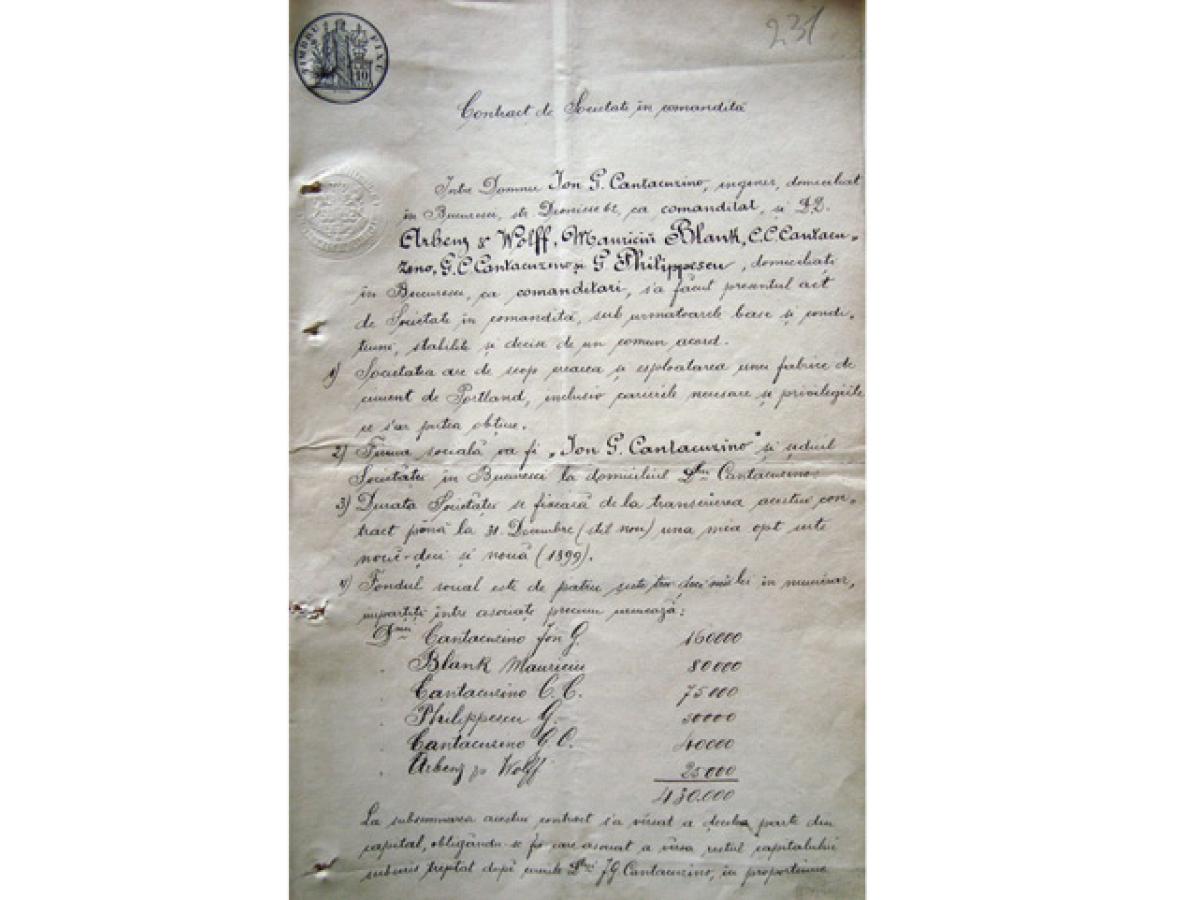 231
TIMBRU FIX
10
Contract de Societate in comandită
Intre Domnu Ion G. Cantacuzino, inginer, domiciliat
în Bucuresci, str. ca comanditat, și D.D.
Arbenz & Wolff, Mauriciŭ Blank, C. C. Cantacu-
zeno, G. C. Cantacuzino și G. Philippescu, domiciliati
în Bucuresci, ca comanditari, s'a făcut presentul act
de Societate în comandită, sub urmatoarele base și condi-
tiuni, stabilite și decise de un comun acord.
1) Societatea are de scop crearea și esploatarea unei fabrice de
ciment de Portland, inclusiv carierile necesare și privilegiile
ce s'ar putea obține.
2) Firma socială va fi „Ion G. Cantacuzino" și sediul
Societăței în Bucuresci la domiciliul D-lui Cantacuzino.
3) Durata Societăței se fixează de la transcrierea acestui con-
tract pănă la 31 Decembre (stil nou) una mie opt sute
nouĕ-deci și nouă (1899).
4) Fondul social este de patru sute trei deci mii lei în numerar,
împărțiți între asociați precum urmează:
D-nii Cantacuzino Ion G. 160000
" Blank Mauriciu 80000
" Cantacuzino C. C. 75000
" Philippescu G. 50000
" Cantacuzino G. C. 40000
" Arbenz & Wolff 25000
430.000
La subsemnarea acestui contract s'a vĕrsat a decea parte din
capital, obligându-se fie care asociat a vĕrsa restul capitalului
subscris treptat după cererile D-lui J. G. Cantacuzino, în proportiune